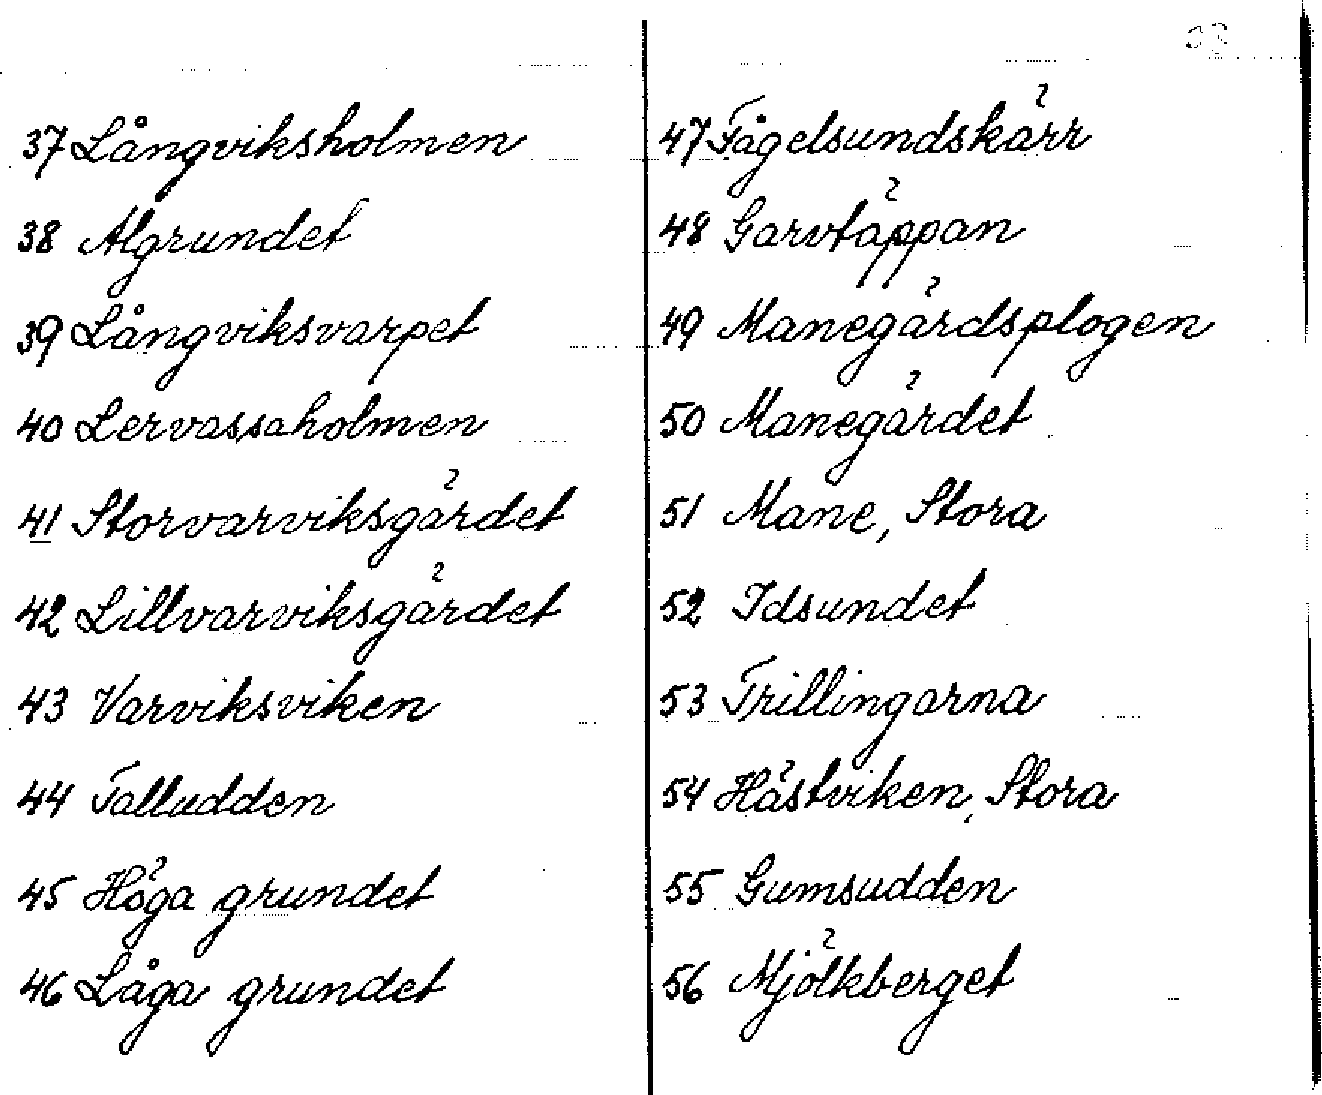 37 Långviksholmen
38 Algrundet
39 Långviksvarpet
40 Lervassaholmen
41 Storvarviksgärdet
42 Lillvarviksgärdet
43 Varviksviken
44 Talludden
45 Höga grundet
46 Låga grundet
47 Fågelsundskärr
48 Garvtäppan
49 Manegärdsplogen
50 Manegärdet
51 Mane, Stora
52 Idsundet
53 Trillingarna
54 Hästviken, Stora
55 Gumsudden
56 Mjölkberget